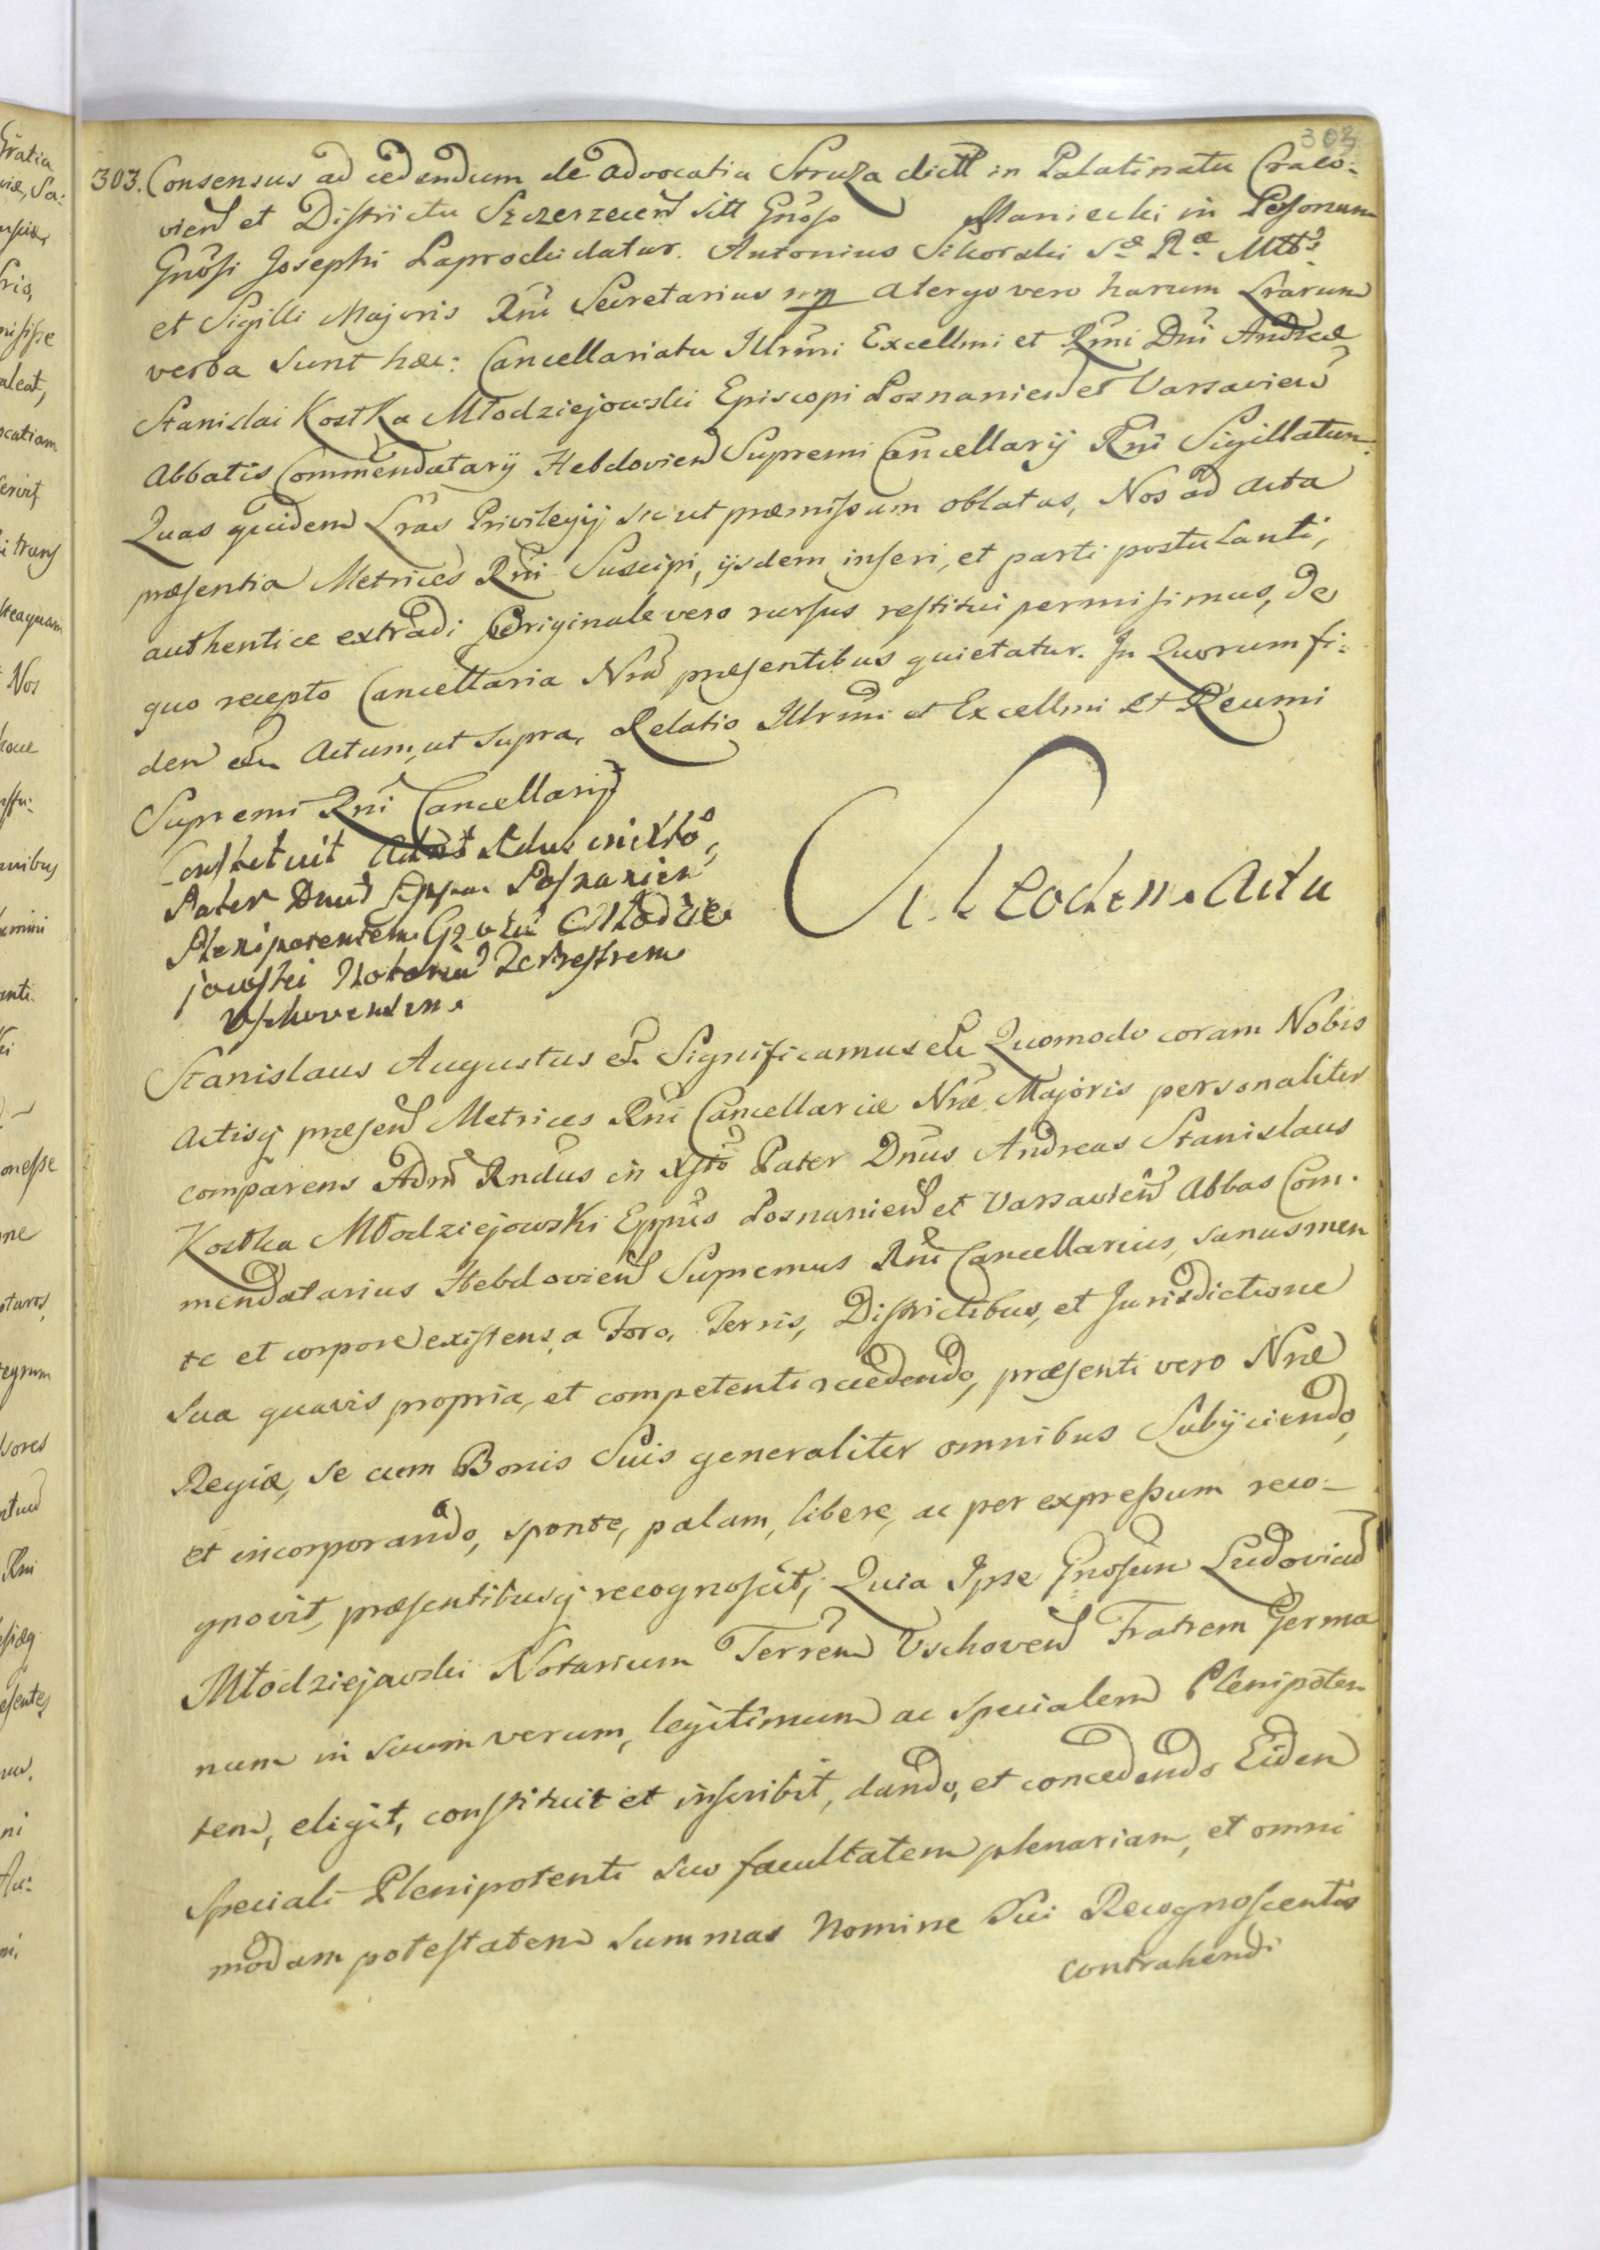 303
303. Consensus ad cedendum de advocatia Struza dict in Palatinatu Craco-
vien et Districtu Szczerzecen sitt Gnoso Maniecki in Personam
Gnosi Josephi Laprocki datur. Antonius Sikorski Sæ Ræ Mttis
et Sigilli Majoris Rni Secretarius mp A tergo vero harum Lrarum
verba sunt hæc: Cancellariatu Illrmi Excellmi et Rmi Dni Andreæ
Stanislai Kostka Młodziejowski Episcopi Posnanien et Varsavien
Abbatis Commendatarij Hebdovien Supremi Cancellarij Rni Sigillatum.
Quas quidem Lras Privilegij sicut præmissum oblatas, Nos ad acta
præsentia Metrices Rni Suscipi, ijsdem inseri, et parti postulanti,
authentice extradi Originale vero rursus restitui permisimus, de
quo recepto Cancellaria Nra præsentibus quietatur. In Quorum fi-
dem etc Actum, ut supra. Relatio Illrmi et Excellmi et Reumi
Supremi Rni Cancellarij
Constituit Adm Rdus in Xto
Pater Dnus Eppus Posnanien
Plenipotentem Gzosu Młodzie
jowski Notariu Terrestrem
Vschovensem.
Eodem Actu
Stanislaus Augustus etc Significamus etc Quomodo coram Nobis
Actisq præsen Metrices Rni Cancellariæ Nræ Majoris personaliter
comparens Adm Rndus in Xsto Pater Dnus Andreas Stanislaus
Kostka Młodziejowski Eppus Posnanien et Varsavien Abbas Com-
mendatarius Hebdovien Supremus Rni Cancellarius, sanus men
te et corpore existens, a Foro, Terris, Districtibus, et Jurisdictione
sua quavis propria, et competenti recedendo, præsenti vero Nræ
Regiæ, se cum Bonis Suis generaliter omnibus Subijciendo,
et incorporando, sponte, palam, libere, ac per expressum reco-
gnovit, præsentibusq recognoscit; Quia Ipse Gnosum Ludovicum
Młodziejowski Notarium Terren Vschoven Fratrem Germa
num in suum verum, legitimum ac specialem Plenipoten
tem, eligit, constituit et inscribit, dando, et concedendo Eidem
Speciali Plenipotenti suo facultatem plenariam, et omni
modam potestatem summas Nomine Sui Recognoscentis
contrahendi